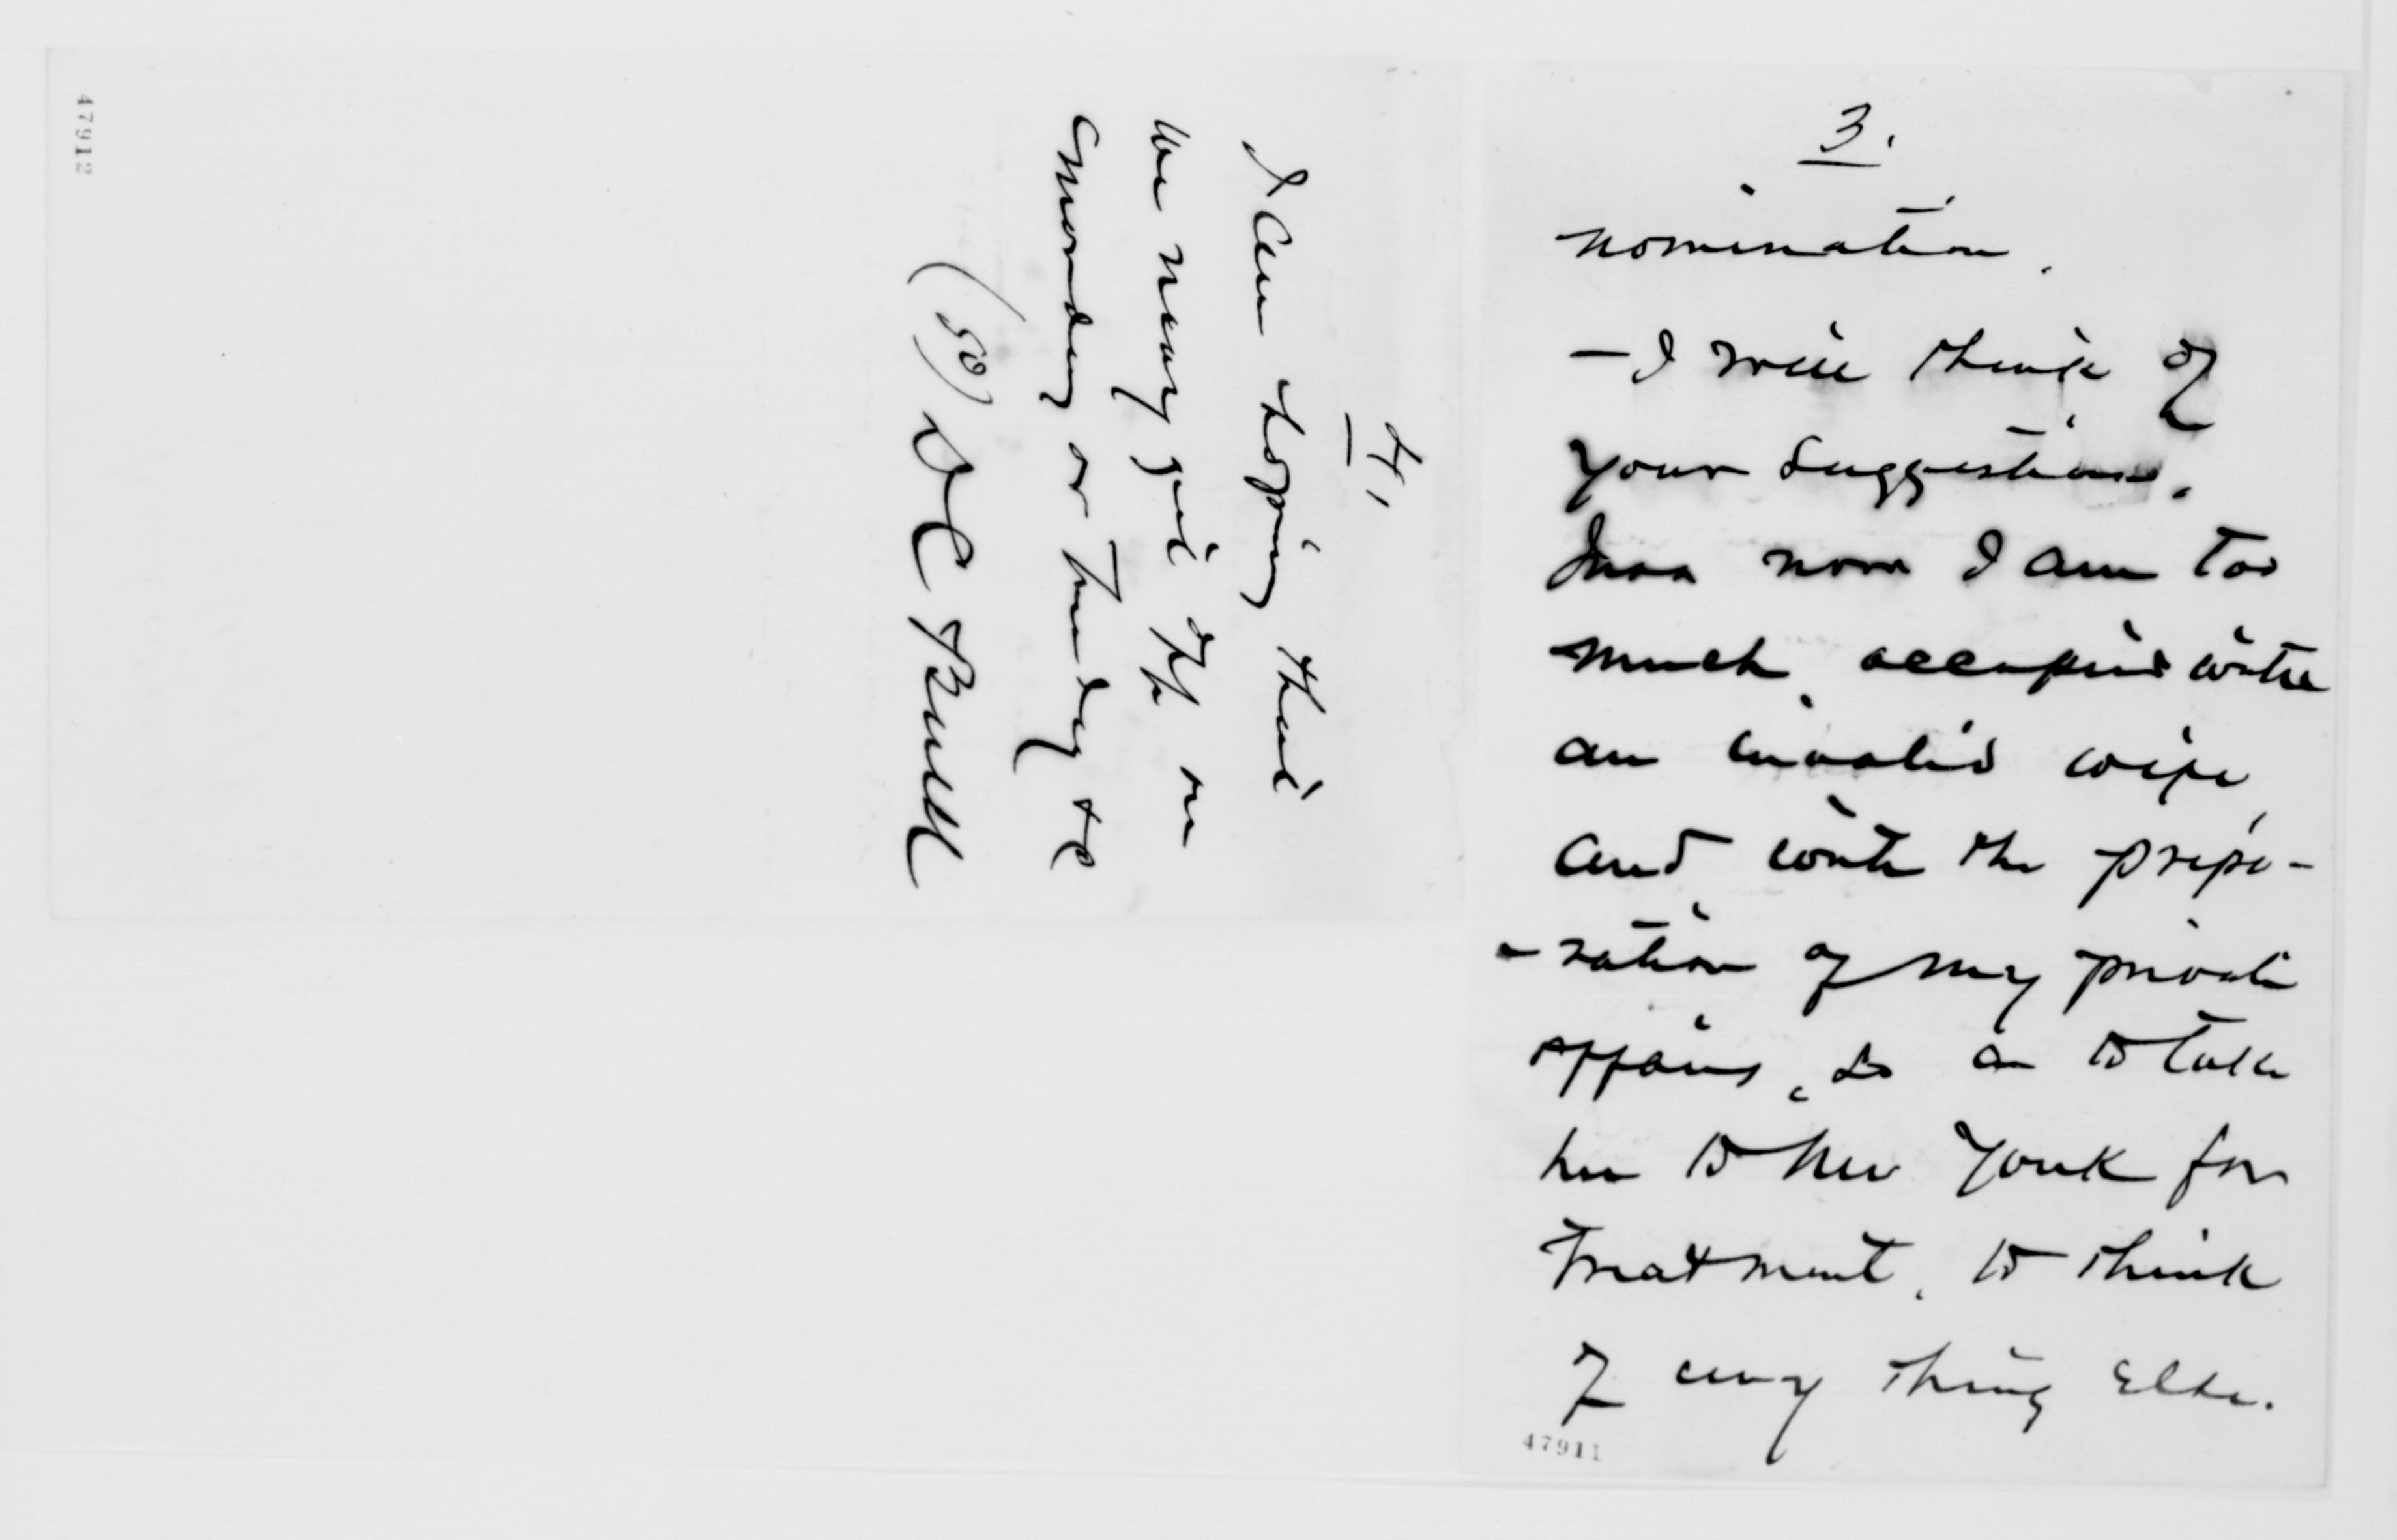 3.
nomination.
— I will think of
your suggestions.
Just now I am too
much occupied with
an invalid wife,
and with the prepa-
-ration of my private
affairs, so as to take
her to New York for
treatment, to think
of any thing else.
47911
4,
I am hoping that
we may get off on
Monday or Tuesday
(so) D C Buell
47912